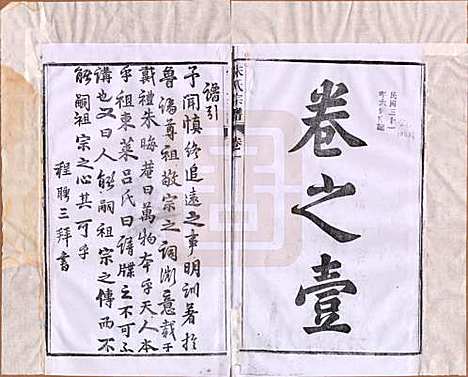 卷之壹
朱氏宗譜 卷一
譜引
予聞慎終追遠之事明訓著於
魯論尊祖敬宗之詞淵意載于
戴禮朱晦菴曰萬物本乎天人本
乎祖東萊呂氏曰譜牒之不可不
講也又曰人能嗣祖宗之傳而不
能嗣祖宗之心其可乎
程聘三拜書